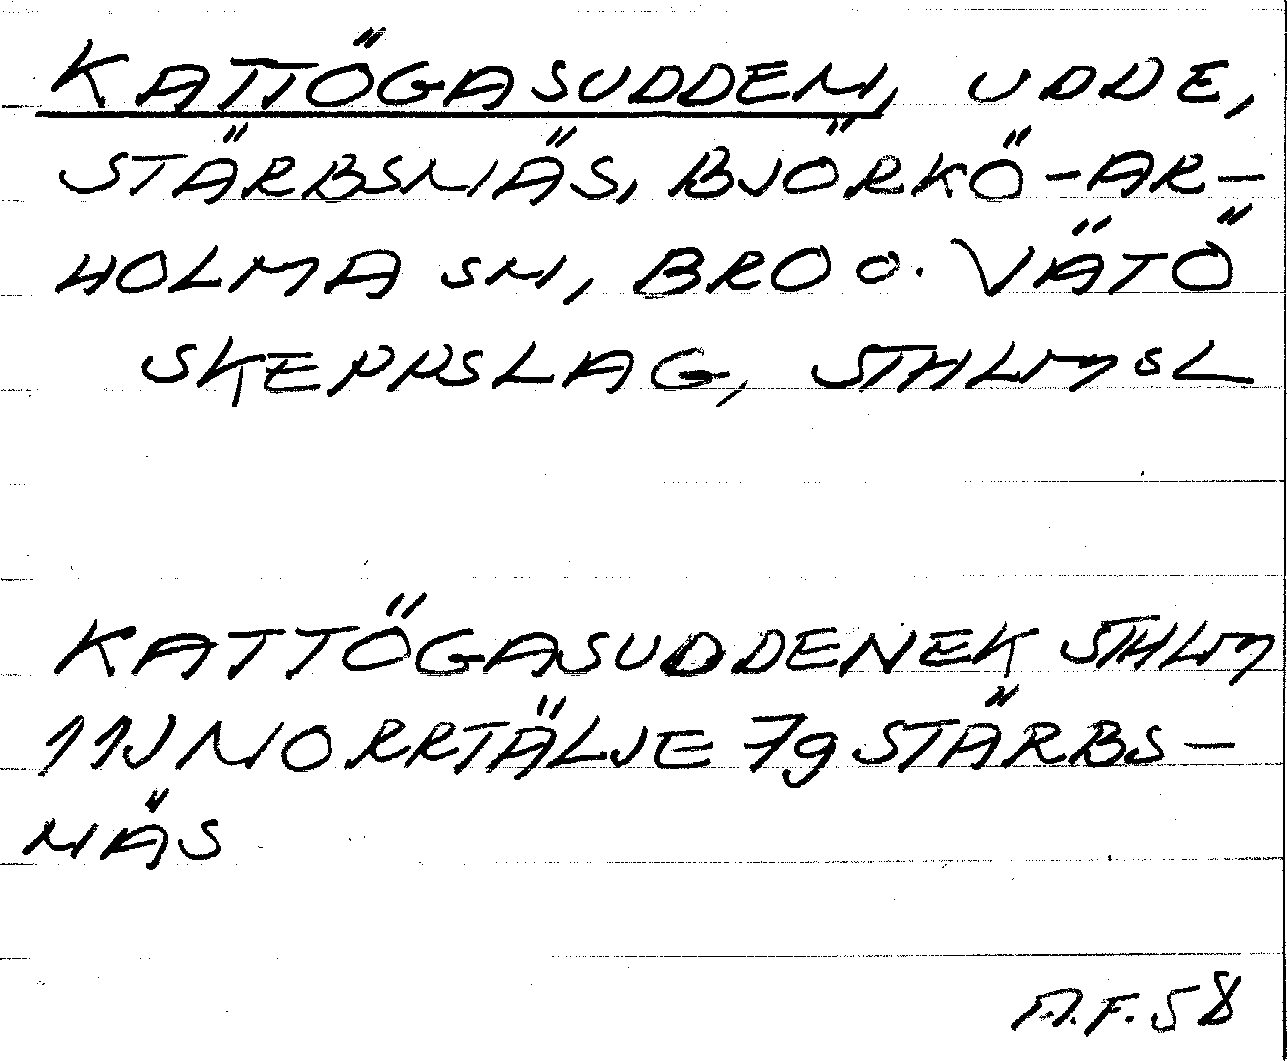 KATTÖGASUDDEN, UDDE,
STÄRBSNÄS, BJÖRKÖ-AR-
HOLMA SN, BRO O. VÄTÖ
SKEPPSLAG, STHLMSL
KATTÖGASUDDEN EK STHLM
11J NORRTÄLJE 7g STÄRBS-
NÄS
A.F. 58